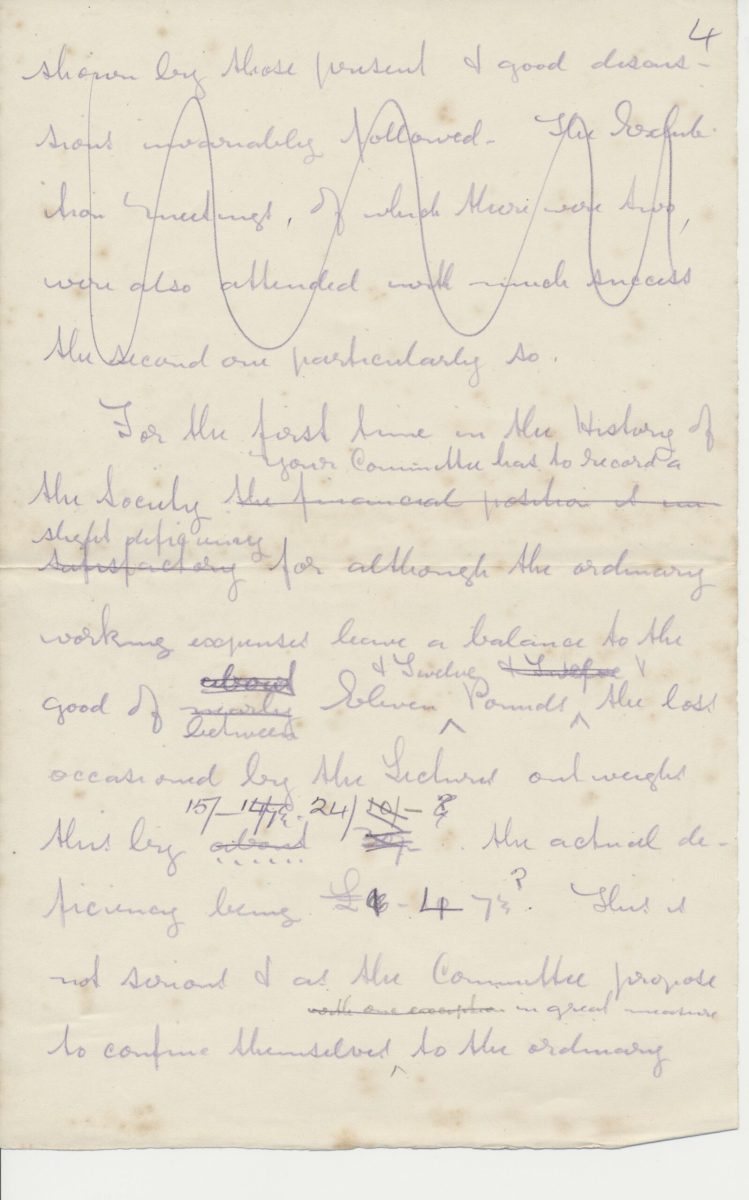 4
shown by those present & good discus-
sions invariably followed. The Exhibi-
tion Meetings, of which there were two,
were also attended with much success
the second one particularly so.
For the first time in the History of
your Committee has to record a
the Society the financial position is un
slight deficiency
satisfactory for although the ordinary
working expenses leave a balance to the
about & Twelve & Twelve
good of nearly Eleven Pounds the loss
between
occasioned by the Lectures outweighs
15/- 24/ 10/- ?
this by about the actual de-
ficiency being £ 4 ? This is
not serious & as the Committee propose
with one exception in great measure
to confine themselves to the ordinary